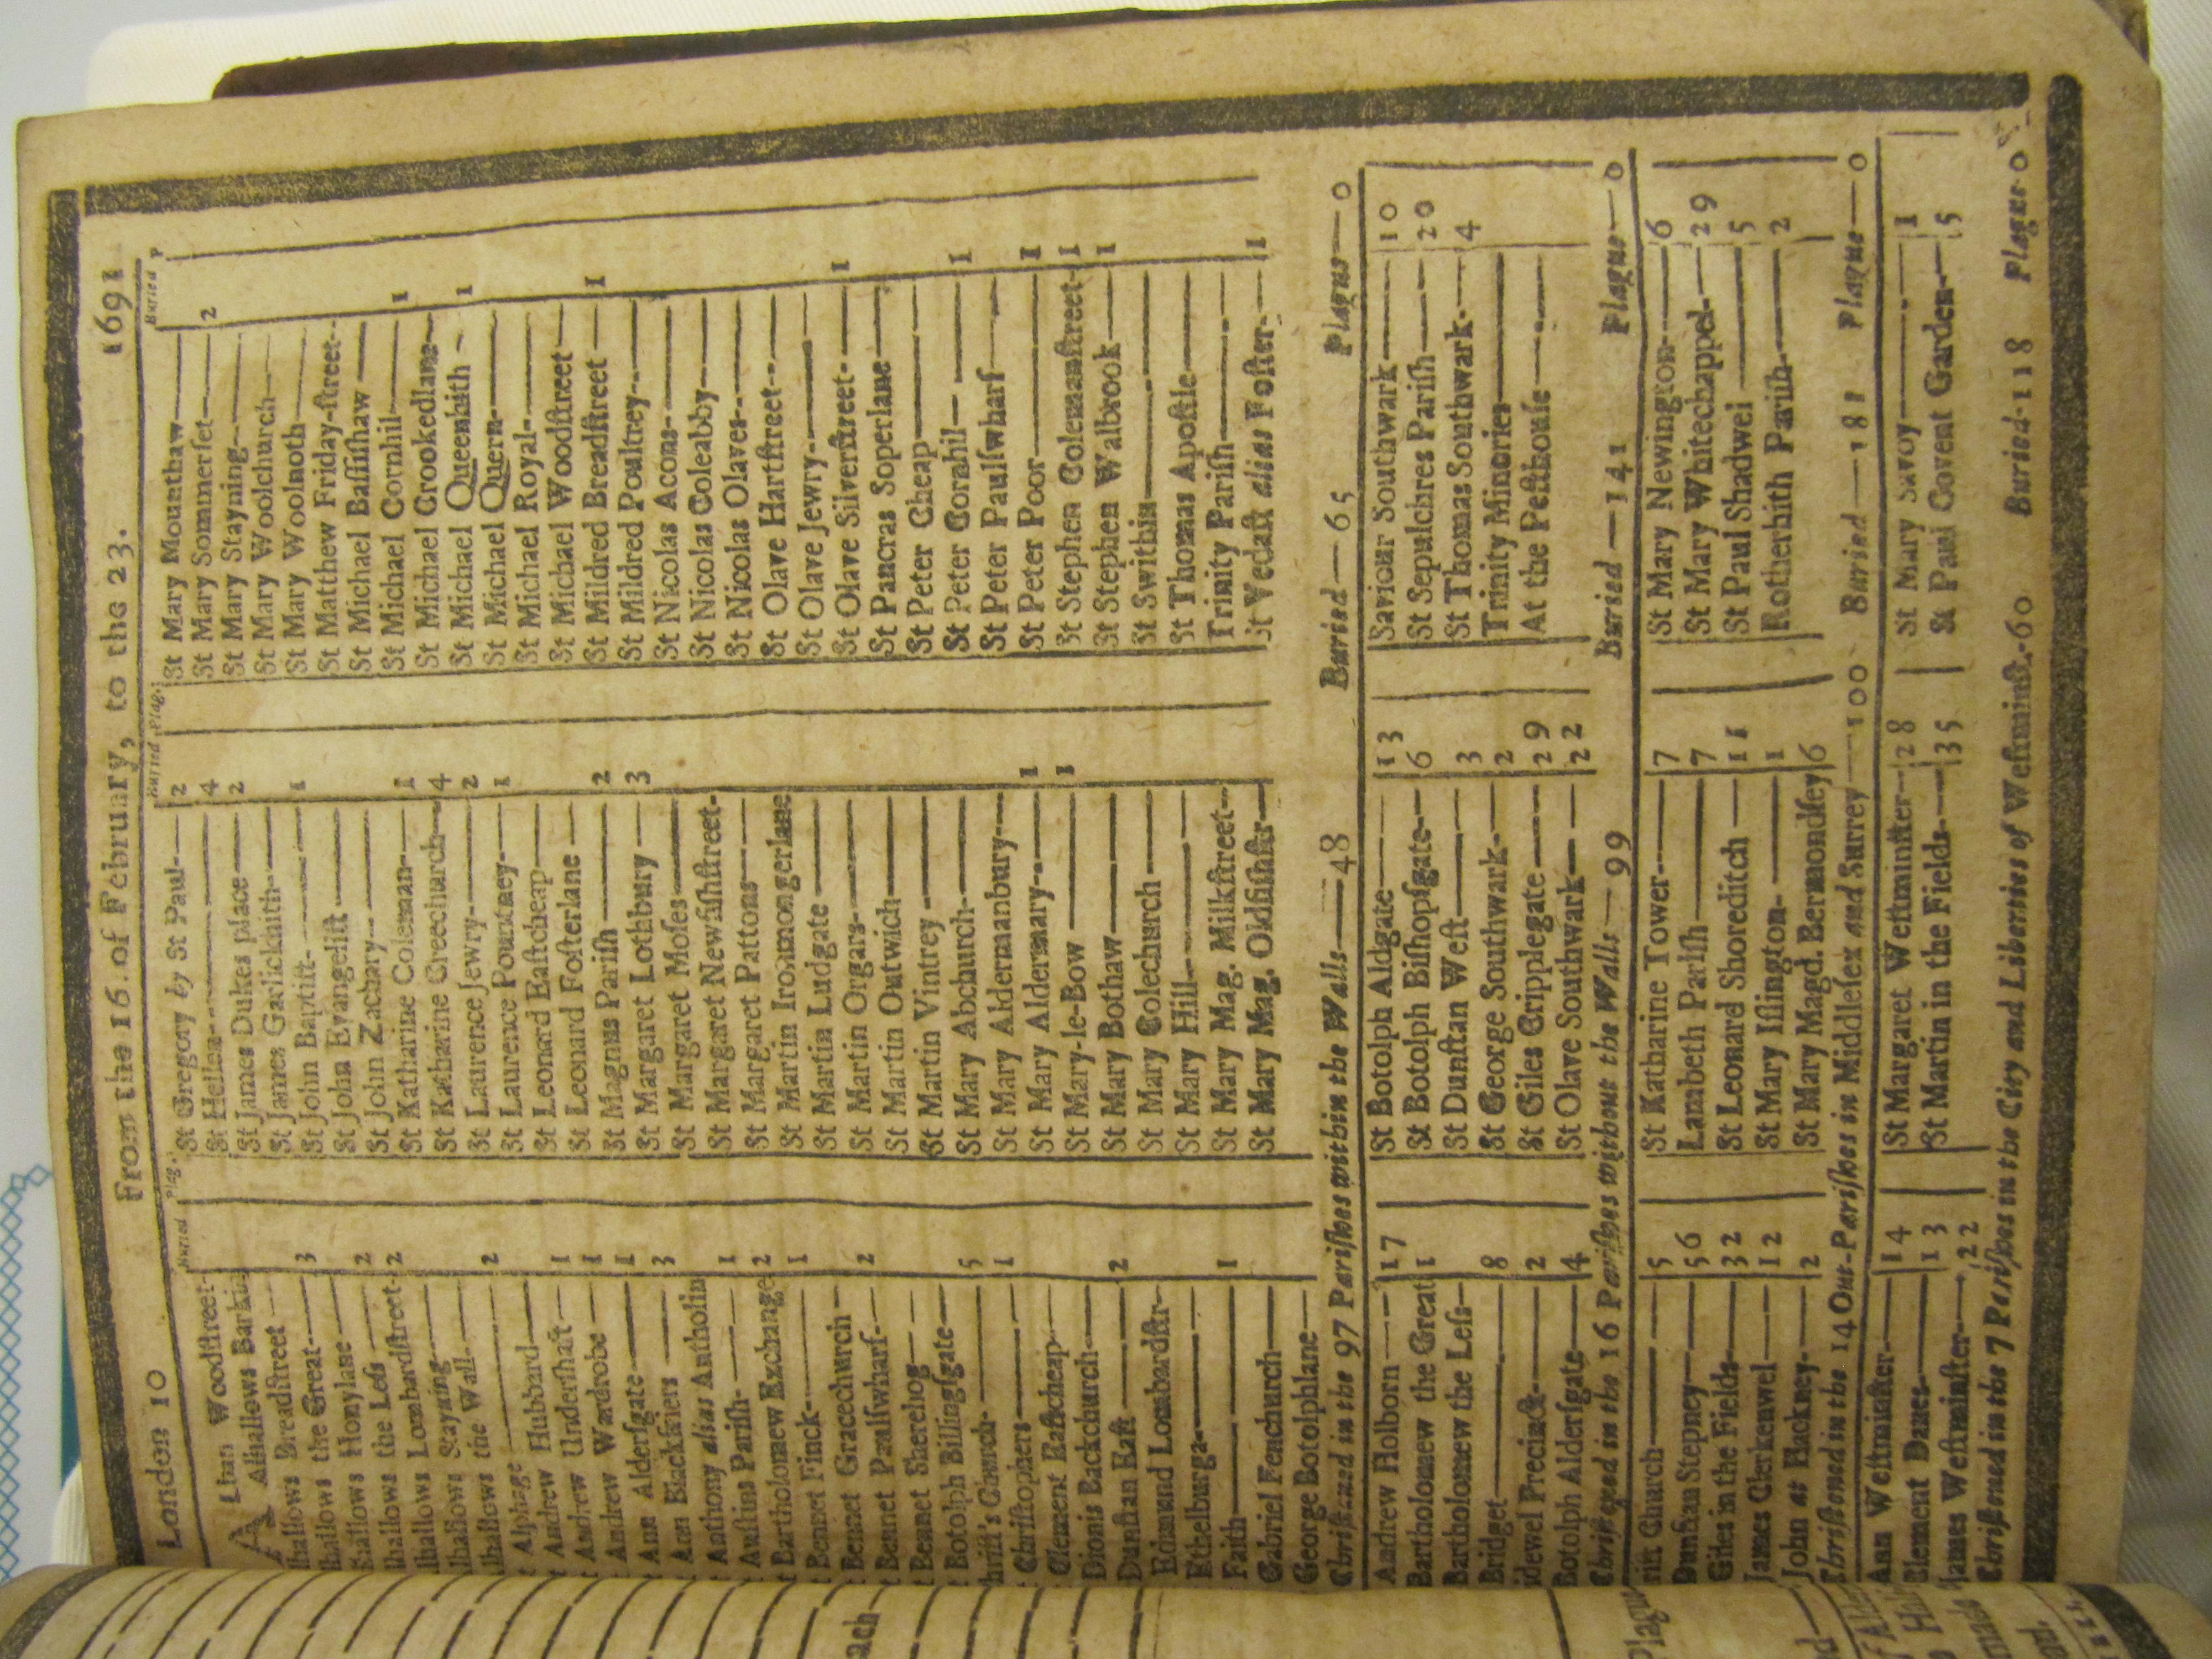 London 10 From the 16. of February, to the 23. 1691
Buried Plag.
Woodſtreet
Alhallows Barkin
Breadſtreet
the Great 3
Honylane
the Leſs 2
Lombardſtreet 2
Stayning
the Wall 2
Alphage
Andrew Hubbard
Andrew Underſhaft 1
Andrew Wardrobe 1
Ann Alderſgate 1
Ann Blackfriers 3
Anthony alias Antholin
Auſtins Pariſh 1
Bartholomew Exchange 2
Bennet Finck 1
Bennet Gracechurch
Bennet Paulſwharf 2
Bennet Sherelog
Botolph Billingſgate
Church 5
Chriſtophers 1
Clement Eaſtcheap
Dionis Backchurch
Dunſtan Eaſt 2
Edmund Lombardſtr
Ethelburga
Faith 1
Gabriel Fenchurch
George Botolphlane
Buried Plag.
St Gregory by St Paul 2
St Hellen 4
St James Dukes place 2
St James Garlickhith
St John Baptiſt 1
St John Evangeliſt
St John Zachary
St Katharine Coleman 1
St Katharine Creechurch 4
St Laurence Jewry 2
St Laurence Pountney 1
St Leonard Eaſtcheap
St Leonard Foſterlane
St Magnus Pariſh 2
St Margaret Lothbury 3
St Margaret Moſes
St Margaret Newfiſhſtreet
St Margaret Pattons
St Martin Ironmongerlane
St Martin Ludgate
St Martin Orgars
St Martin Outwich
St Martin Vintrey
St Mary Abchurch
St Mary Aldermanbury
St Mary Aldermary 1
St Mary-le-Bow 1
St Mary Bothaw
St Mary Colechurch
St Mary Hill
St Mary Mag. Milkſtreet
St Mary Mag. Oldfiſhſtr
Buried P
St Mary Mounthaw
St Mary Sommerſet 2
St Mary Stayning
St Mary Woolchurch
St Mary Woolnoth
St Matthew Friday-ſtreet
St Michael Baſſiſhaw
St Michael Cornhil 1
St Michael Crookedlane
St Michael Queenhith 1
St Michael Quern
St Michael Royal
St Michael Woodſtreet
St Mildred Breadſtreet 1
St Mildred Poultrey
St Nicolas Acons
St Nicolas Coleabby
St Nicolas Olaves
St Olave Hartſtreet
St Olave Jewry
St Olave Silverſtreet 1
St Pancras Soperlane
St Peter Cheap
St Peter Cornhil 1
St Peter Paulſwharf
St Peter Poor 1
St Stephen Colemanſtreet 1
St Stephen Walbrook 1
St Swithin
St Thomas Apoſtle
Trinity Pariſh
St Vedaſt alias Foſter 1
Chriſtned in the 97 Pariſhes within the Walls 48 Buried 65 Plague 0
Andrew Holborn 17
Bartholomew the Great 1
Bartholomew the Leſs
Bridget 8
Precinct 2
Botolph Alderſgate 4
St Botolph Aldgate 13
St Botolph Biſhopſgate 6
St Dunſtan Weſt 3
St George Southwark 2
St Giles Cripplegate 29
St Olave Southwark 22
Saviour Southwark 10
St Sepulchres Pariſh 20
St Thomas Southwark 4
Trinity Minories
At the Peſthouſe
Chriſtned in the 16 Pariſhes without the Walls 99 Buried 141 Plague 0
Church 5
Dunſtan Stepney 56
Giles in the Fields 32
James Clerkenwel 12
John at Hackney 2
St Katharine Tower 7
Lambeth Pariſh 7
St Leonard Shoreditch 11
St Mary Iſlington 1
St Mary Magd. Bermondſey 6
St Mary Newington 6
St Mary Whitechappel 29
St Paul Shadwel 5
Rotherhith Pariſh 2
Chriſtned in the 14 Out-Pariſhes in Middleſex and Surrey 100 Buried 181 Plague 0
Ann Weſtminſter 14
Clement Danes 13
James Weſtminſter 22
St Margaret Weſtminſter 28
St Martin in the Fields 35
St Mary Savoy 1
St Paul Covent Garden 5
Chriſtned in the 7 Pariſhes in the City and Liberties of Weſtminſt. 60 Buried 118 Plague 0